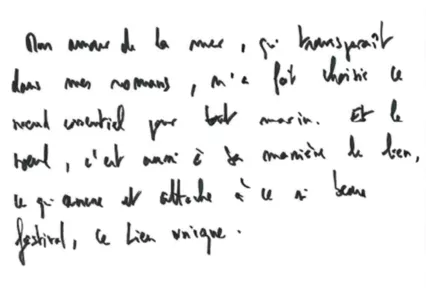 Mon amour de la mer, qui transparaît
dans mes romans, m'a fait choisir ce
nœud essentiel pour tout marin. Et le
nœud, c'est aussi à sa manière le lien,
ce qui amarre et attache à ce si beau
festival, ce lien unique.